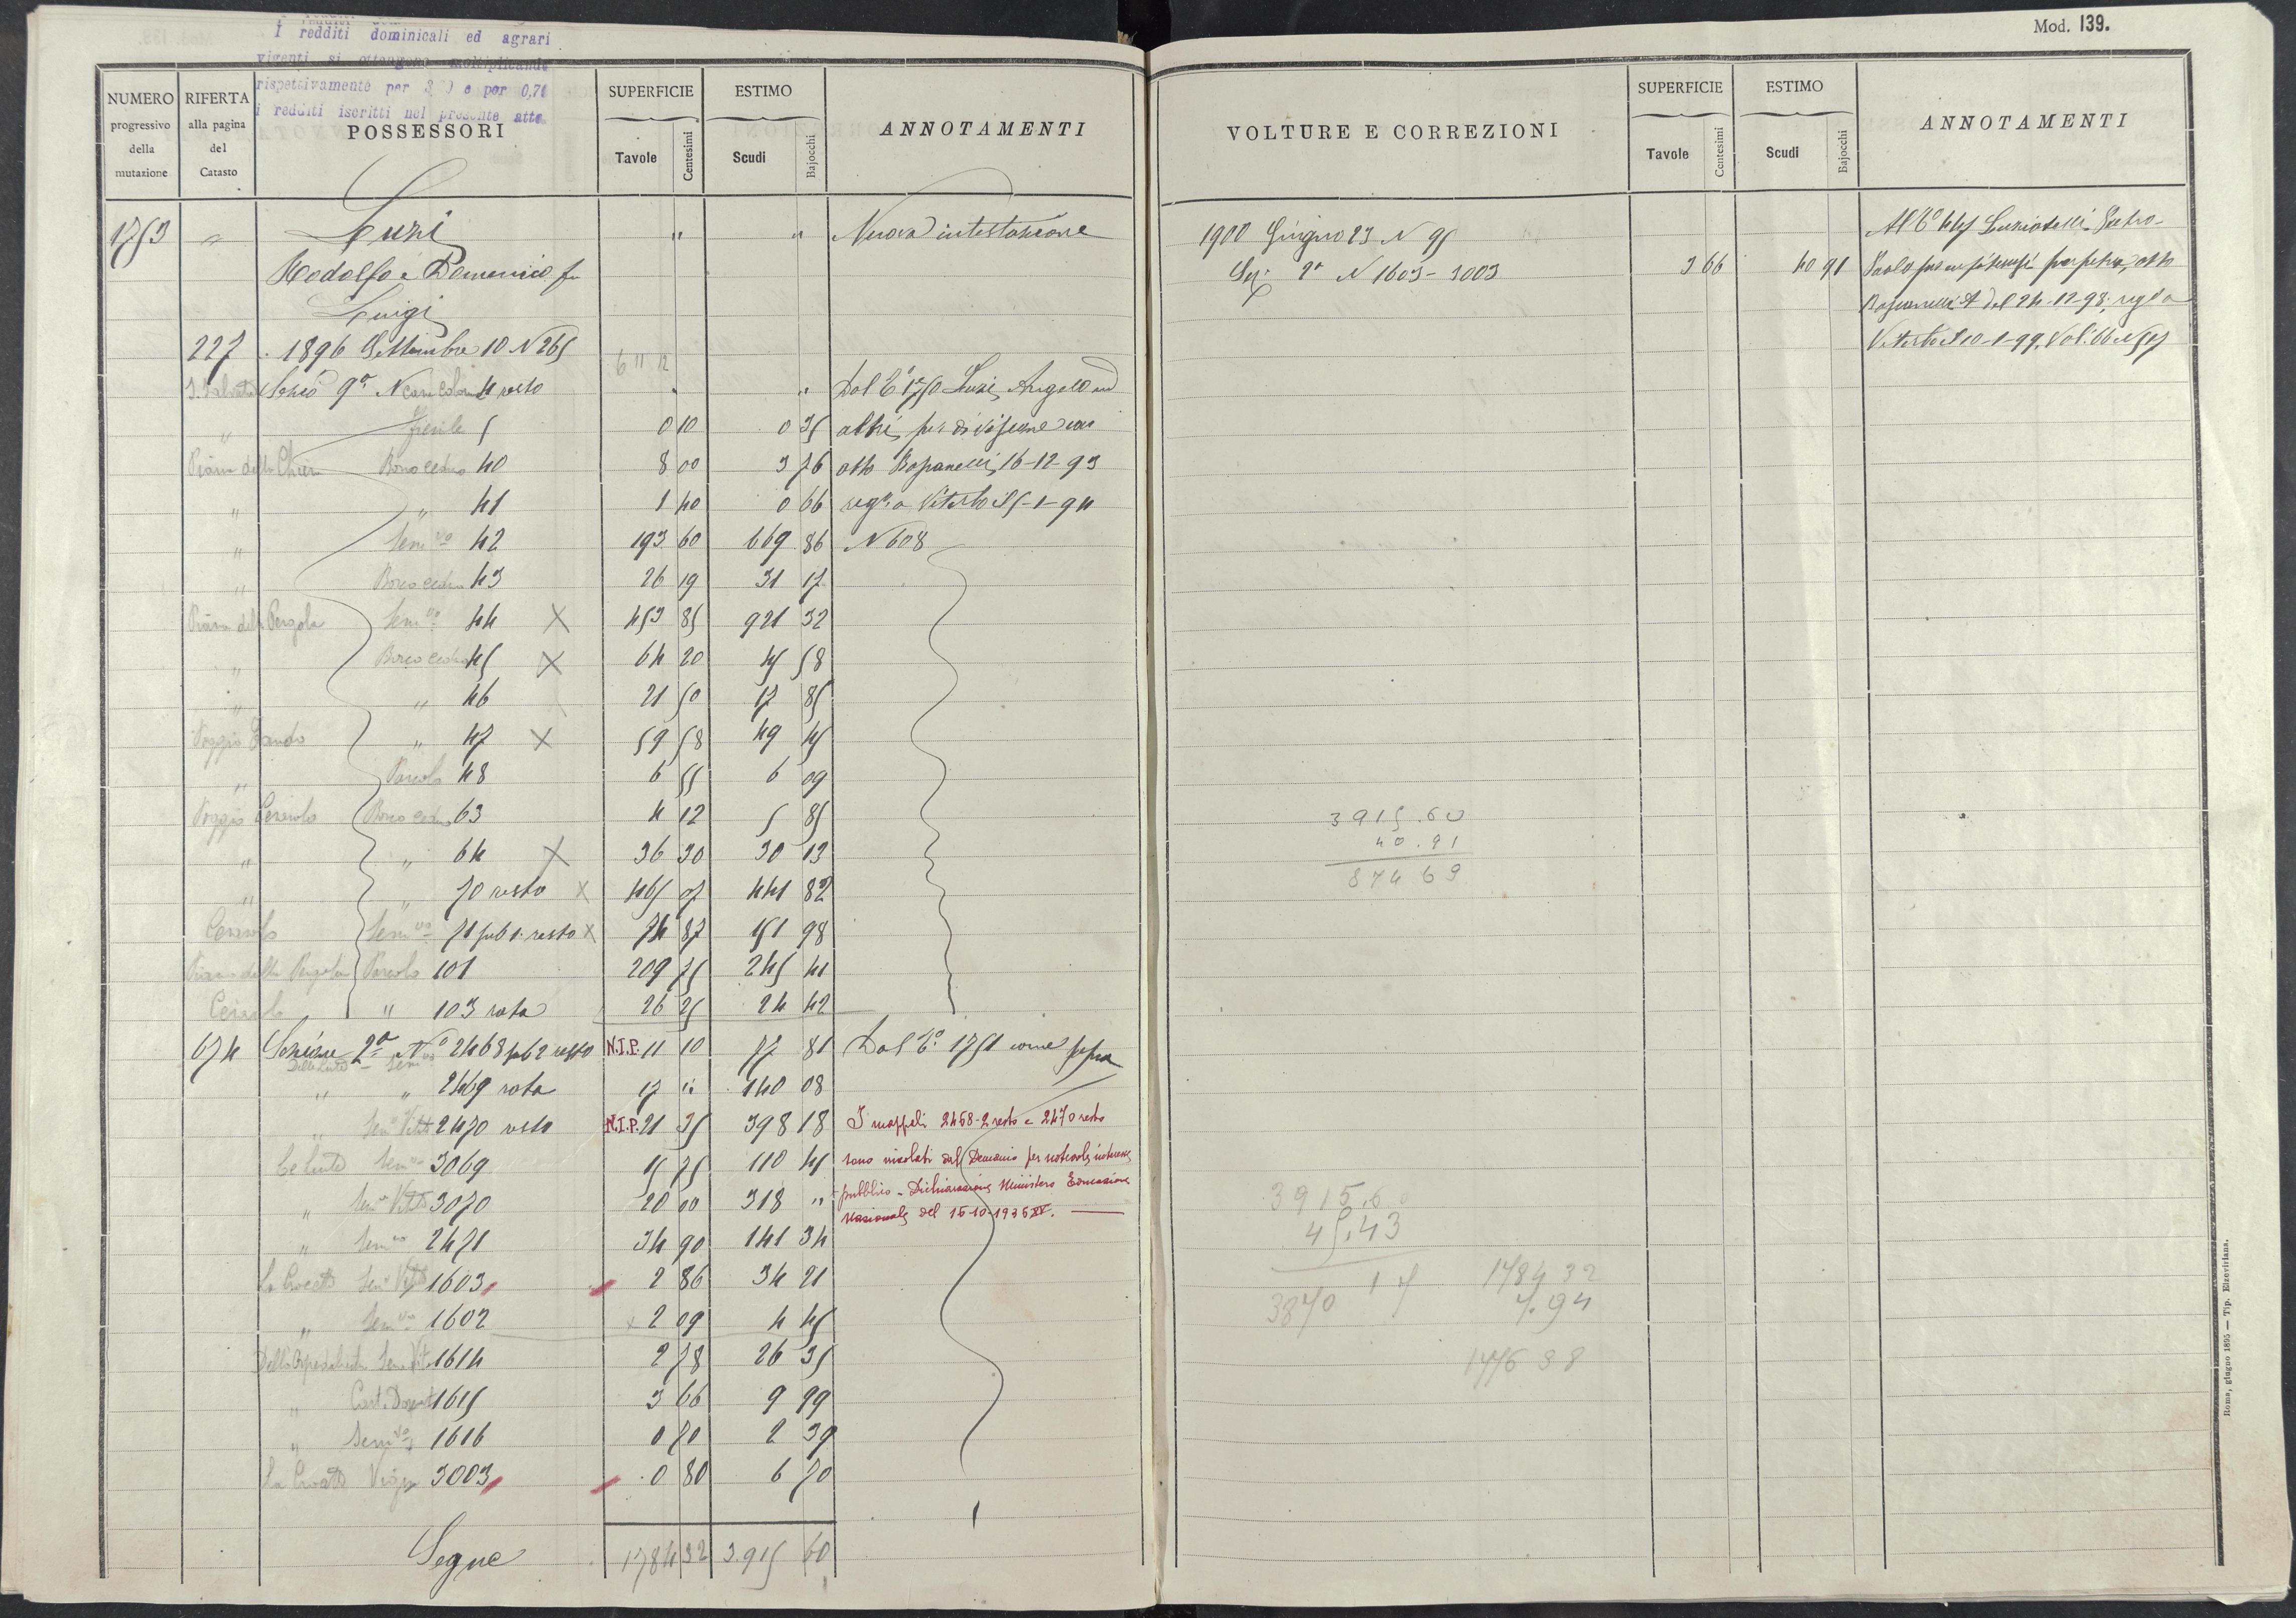 Mod. 139.
I redditi dominicali ed agrari
vigenti si ottengono moltiplicando
rispettivamente per e per 0,70
i redditi iscritti nel presente atto
NUMERO progressivo della mutazione
RIFERTA alla pagina del Catasto
POSSESSORI
SUPERFICIE Tavole Centesimi
ESTIMO Scudi Bajocchi
ANNOTAMENTI
1753 " Luzi " " Nuova intestazione
Rodolfo e Domenico fu
Luigi
227 1896 Settembre 10 N 265 6 11 12
S. Salvatore Sezio 9ª N casa colonica 4 resto " " Dal C° 1750 Luzi Angelo ed
" fienile 5 0 10 0 35 altri per divisione con
Piano della Chiesa Bosco ceduo 40 8 00 3 76 atto Bassanelli 16-12-93
" " 41 1 40 0 66 reg° a Viterbo il 5-1-94
" Sem.vo 42 193 60 669 86 N 608
" Bosco ceduo 43 26 19 31 17
Piano della Pergola Sem.vo 44 X 453 85 921 32
" Bosco ceduo 45 X 64 20 45 58
" " 46 21 50 17 85
Poggio " 47 X 59 58 49 45
" Pascolo 48 6 55 6 09
Poggio Cerreolo Bosco ceduo 63 4 12 5 85
" " 64 X 36 30 30 13
" " 70 resto X 465 07 441 82
Sem.vo 71 sub 1. resto X 74 87 151 98
Piano della Pergola Pascolo 101 209 75 245 41
" 103 rata 26 25 24 42
674 Sezione 2ª N° 2468 sub 2 resto N.I.P. 11 10 77 81 Dal C° 1751 come sopra
Sem.vo
" " 2469 rata 17 " 140 08
" Sem. Vitato 2470 resto N.I.P. 21 35 398 18 I mappali 2468-2 resto e 2470 resto
Sem.vo 3069 15 75 110 45 sono vincolati dal Demanio per notevole interesse
" Sem. Vitato 3070 20 00 318 " pubblico - Dichiarazione Ministero Educazione
Nazionale del 15-10-1936 XV.
" Sem.vo 2471 34 90 141 34
La Crocetta Sem. Vitato 1603 2 86 34 21
" Sem.vo 1602 x 2 09 4 45
Sem. Vitato 1614 2 78 26 35
" Cast. 1615 3 66 9 99
" Sem.vo 1616 0 70 2 39
La Crocetta Vigna 3003 0 80 6 70
Segue 1784 32 3.915 60
VOLTURE E CORREZIONI
SUPERFICIE Tavole Centesimi
ESTIMO Scudi Bajocchi
ANNOTAMENTI
1900 Giugno 23 N 95 Al C°
Sez. 2ª N 1603 - 3003 3 66 40 91 Paolo per enfiteusi perpetua, atto
Bassanelli A del 24-12-98, reg° a
Viterbo il 10-1-99. Vol. 66 N
3915.60
40.91
3874 69
3915.6
45.43
3870 17
1784 32
7.94
1776 38
Roma, giugno 1895 — Tip. Elzeviriana.